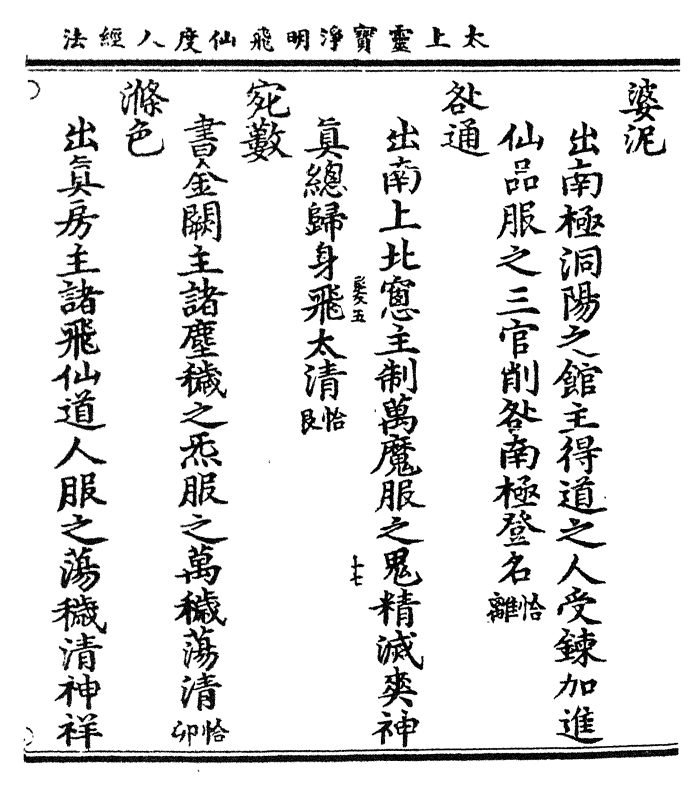 太上靈寶淨明飛仙度人經法
婆泥
出南極洞陽之館主得道之人受鍊加進
仙品服之三官削咎南極登名恰離
咎通
出南上北窻主制萬魔服之鬼精滅爽神
十七
髮五
眞總歸身飛太清恰艮
宛藪
書金闕主諸塵穢之炁服之萬穢蕩清恰卯
滌色
出眞房主諸飛仙道人服之蕩穢清神祥